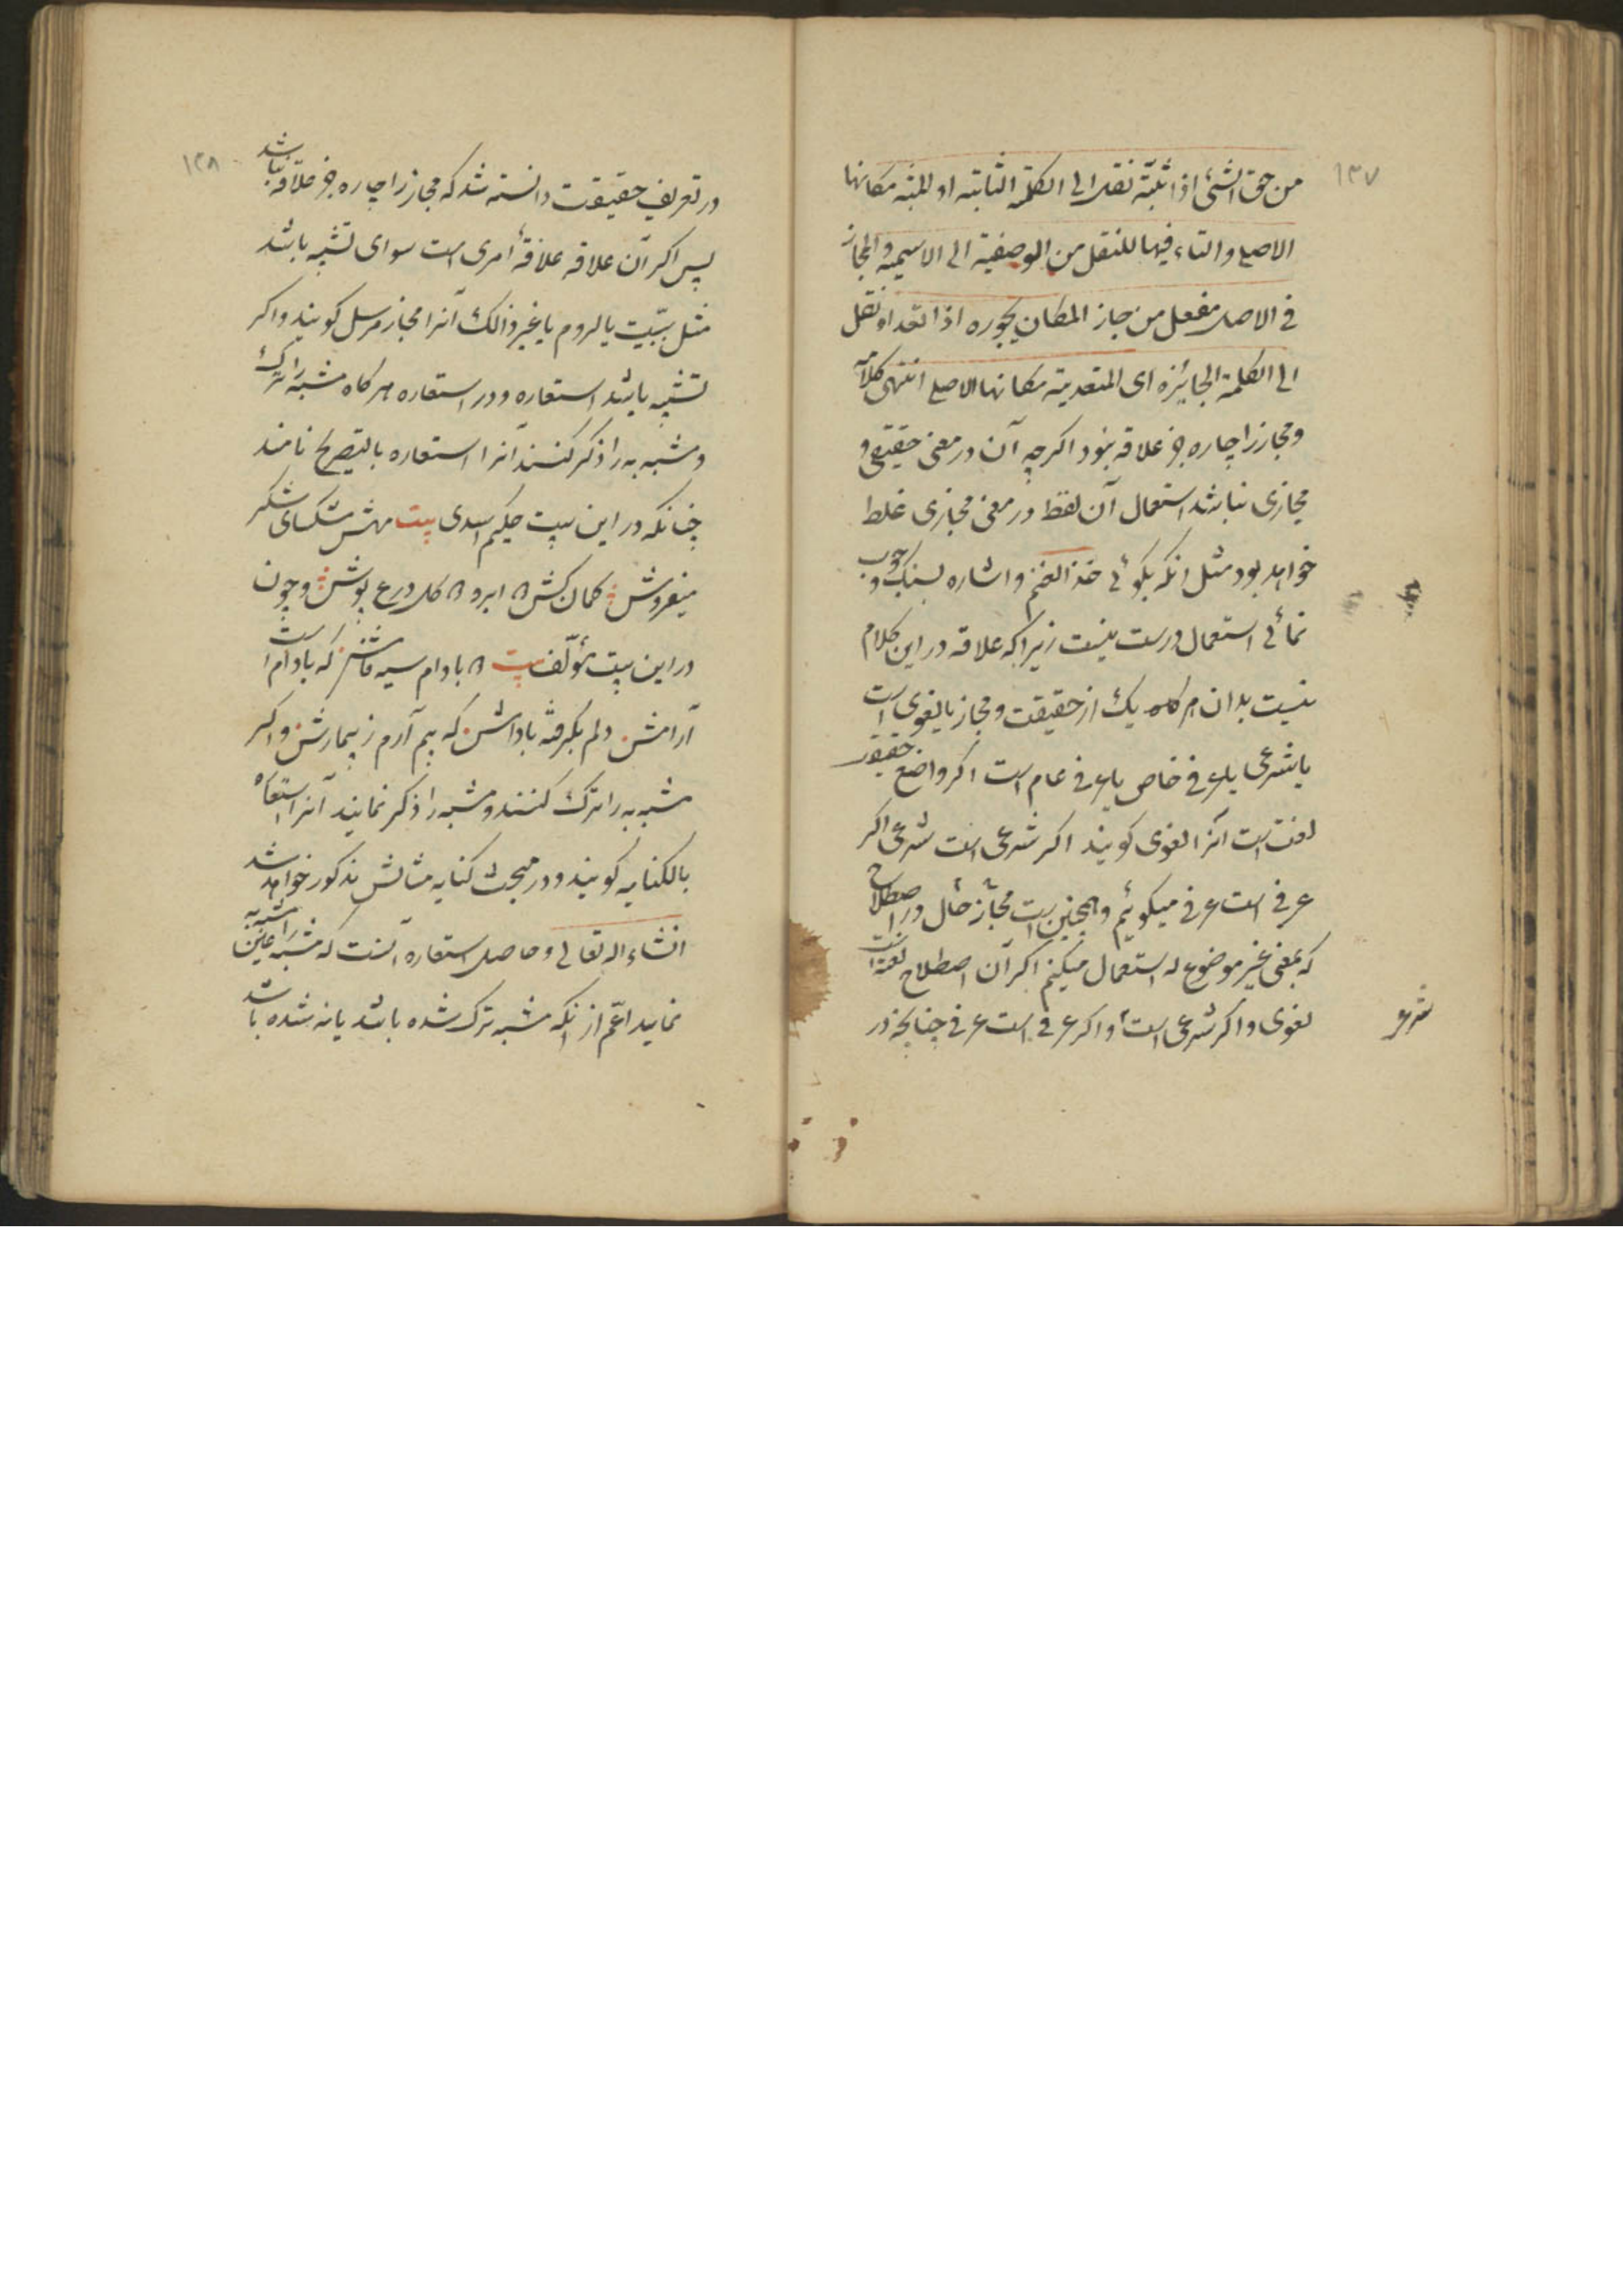 ۱۳۷
من حق الشئ اذا ثبته نقل الی الکلمة الثابته او المثبته مکانها
الاصلی و التاء فیها للنقل من الوصفیة الی الاسمیه و المجاز
فی الاصل مفعل من جاز المکان یجوزه اذا تعداه نقل
الی الکلمة الجائزه ای المتعدیة مکانها الاصلی انتهی کلامه
و مجاز را چاره جز علاقه نبود اکرچه آن در معنی حقیقی و
مجازی نباشد استعمال آن لفظ در معنی مجازی غلط
خواهد بود مثل انکه بکوئی خذ الغنم و اشاره بسنک و چوب
نمائی استعمال درست نیست زیرا که علاقه در این کلام
نیست بدان هر کاه یک از حقیقت و مجاز یا لغوی است
یا شرعی یا عرفی خاص یا عرفی عام است اکر واضع حقیقت
لغت است آنرا لغوی کویند اکر شرعی است شرعی اکر
عرفی است عرفی میکوئیم و همچنین است مجاز حال در اصطلاح
که بمعنی غیر موضوع له استعمال میکنیم اکر آن اصطلاح لغت است
لغوی و اکر شرعی است و اکر عرفی است عرفی چنانچه در
شرعی
۱۳۸
در تعریف حقیقت دانسته شد که مجاز را چاره جز علاقه نباشد
پس اکر آن علاقه علاقهٔ امری است سوای تشبیه باشد
مثل سببیت یا لزوم یا غیر ذالک آنرا مجاز مرسل کویند و اکر
تشبیه باشد استعاره و در استعاره هر کاه مشبه را ترک
و مشبه به را ذکر کنند آنرا استعاره بالتصریح نامند
چنانکه در این بیت حکیم اسدی بیت مهش مشکسای شکر
میفروش کمان کش ابرو کل درع پوش و چون
در این بیت مؤلف بیت بادام سیه فامش که بادام است
آرامش دلم بکرفته باداش که بیم آرم ز بیمارش و اکر
مشبه به را ترک کنند و مشبه را ذکر نمایند آنرا استعاره
بالکنایه کویند و در مبحث کنایه مثالش مذکور خواهد شد
انشاء اله تعالی و حاصل استعاره آنست که مشبه را عین مشبه به
نمایند اعم از انکه مشبه ترک شده باشد یا نه شده باشد